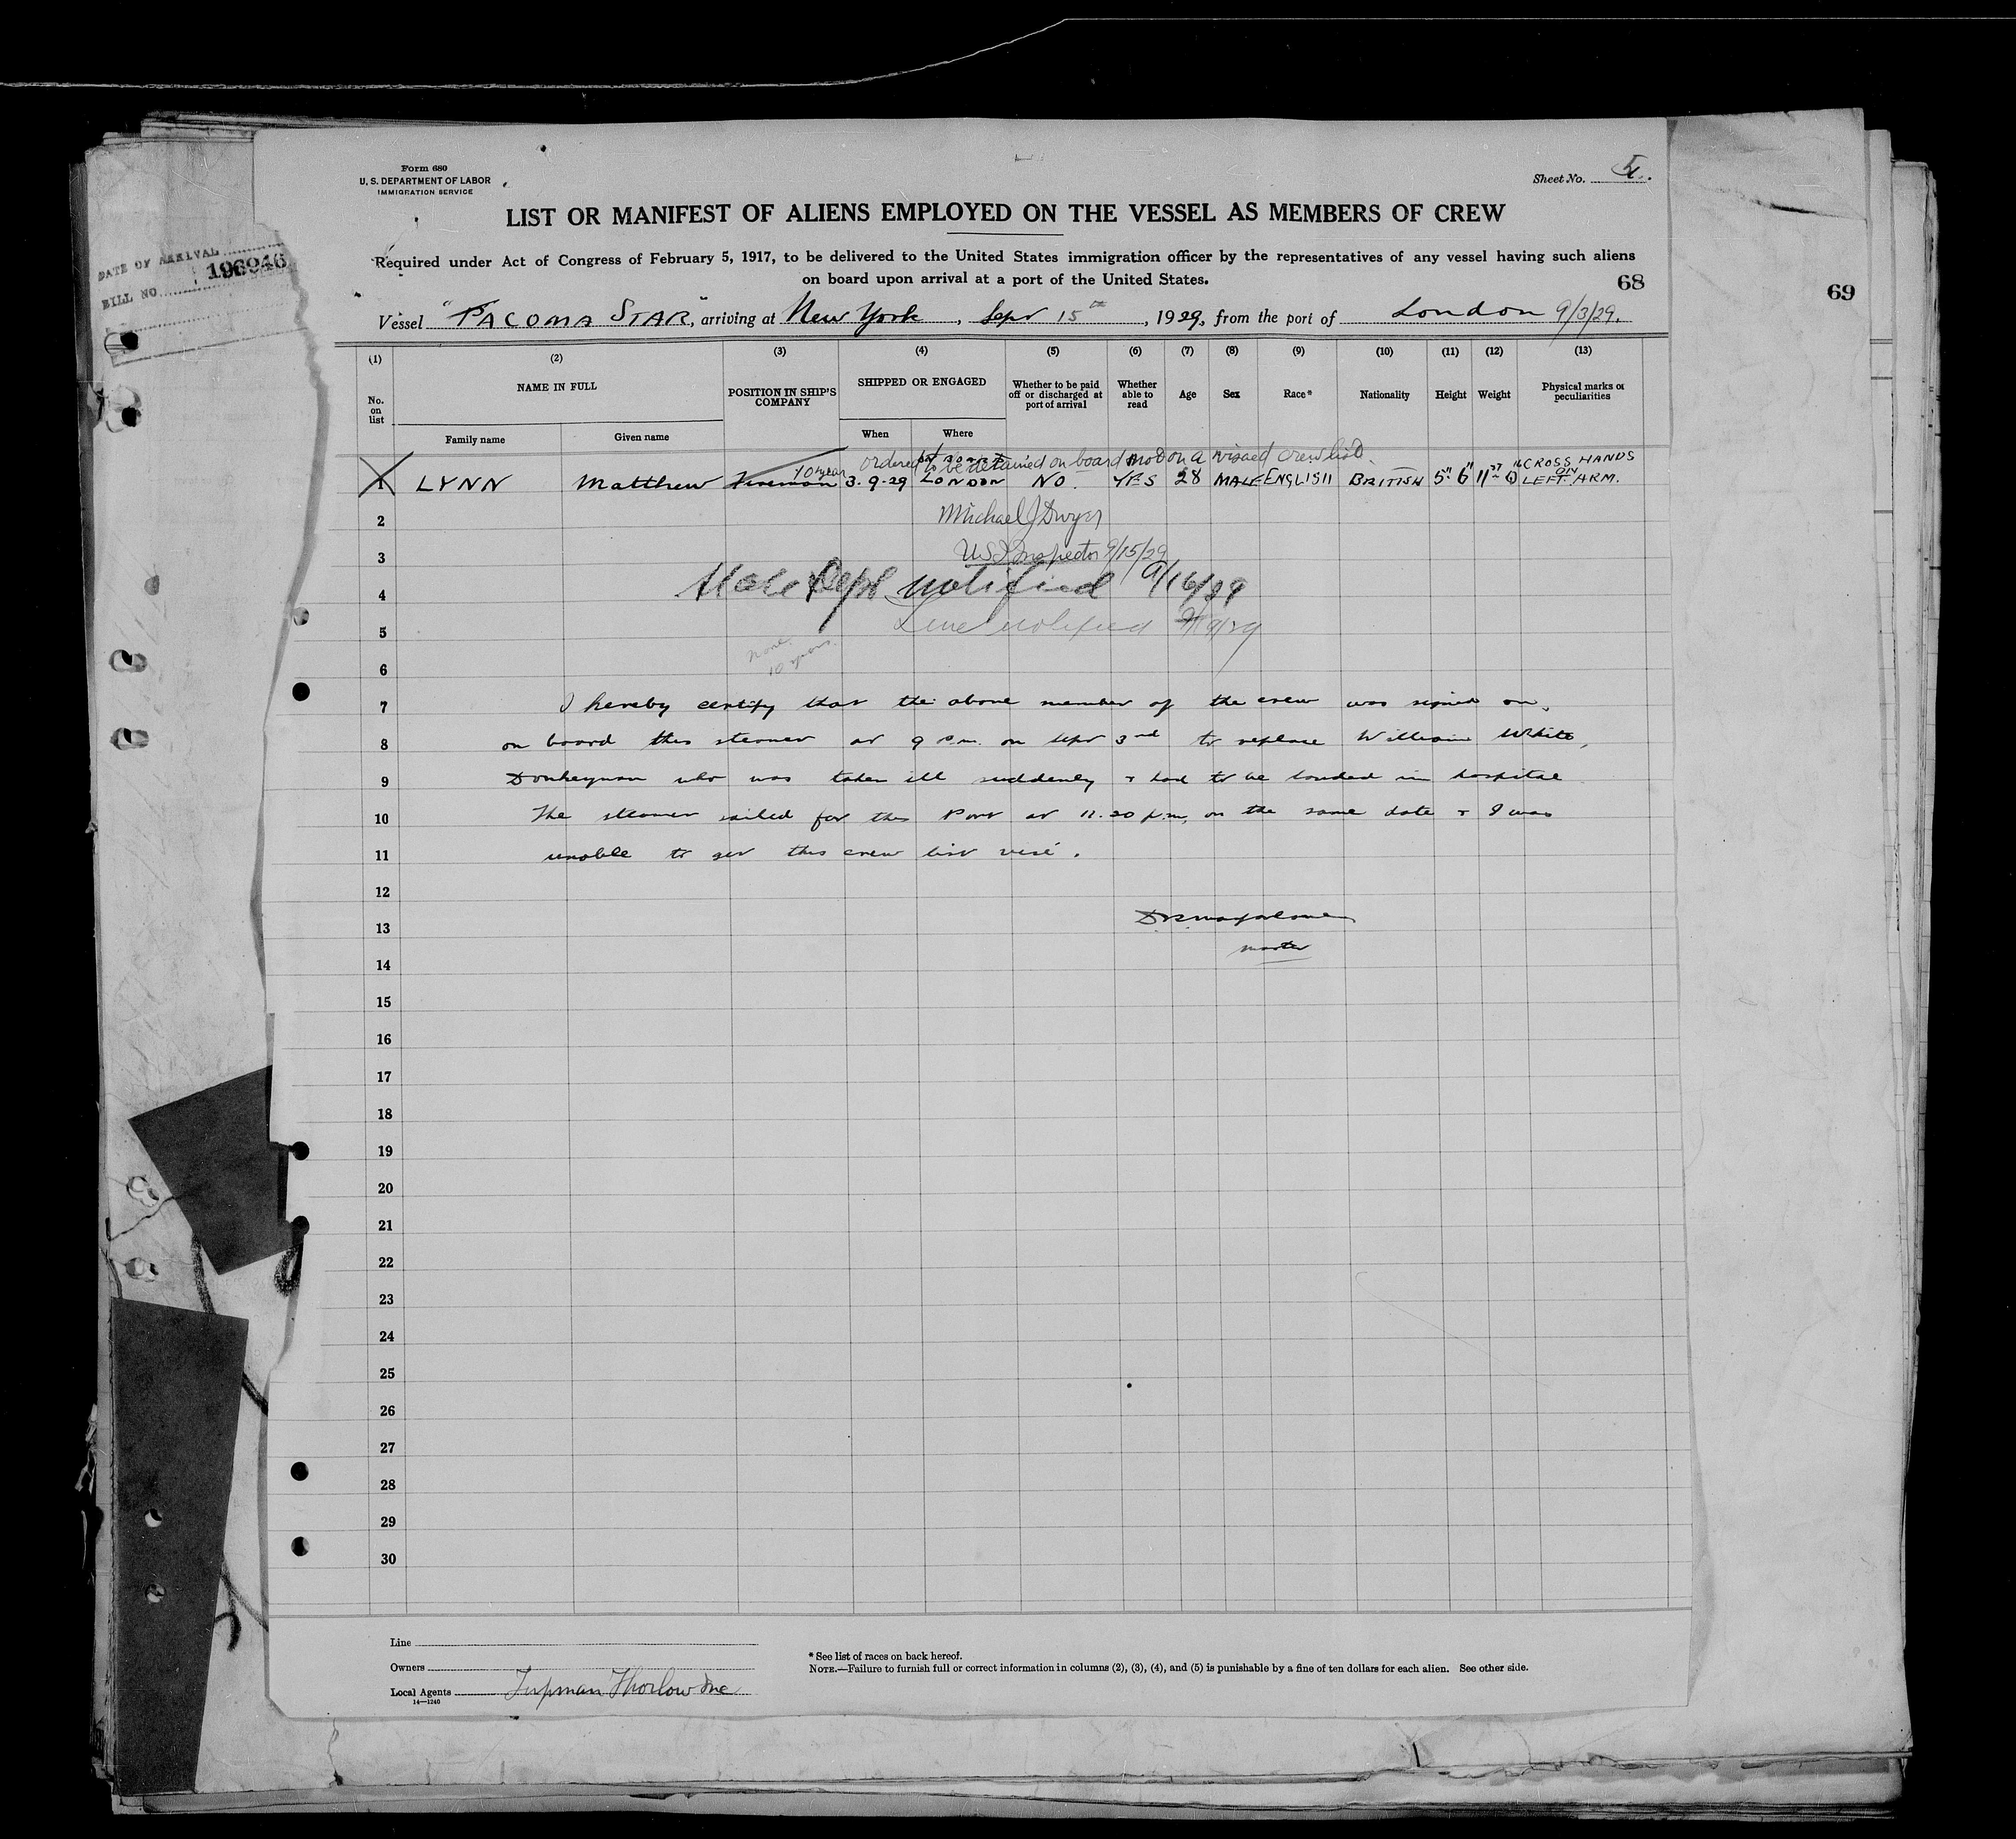 Form 680
U. S. DEPARTMENT OF LABOR
IMMIGRATION SERVICE
Sheet No.
LIST OR MANIFEST OF ALIENS EMPLOYED ON THE VESSEL AS MEMBERS OF CREW
Required under Act of Congress of February 5, 1917, to be delivered to the United States immigration officer by the representatives of any vessel having such aliens
on board upon arrival at a port of the United States.
68
69
DATE OF ARRIVAL
BILL NO. 196946
Vessel "TACOMA STAR", arriving at New York, Sept 15th, 1929, from the port of London 9/3/29.
(1) (2) (3) (4) (5) (6) (7) (8) (9) (10) (11) (12) (13)
No. on list NAME IN FULL POSITION IN SHIP'S COMPANY SHIPPED OR ENGAGED Whether to be paid off or discharged at port of arrival Whether able to read Age Sex Race* Nationality Height Weight Physical marks or peculiarities
Family name Given name When Where
ordered to be detained on board not on a visaed crew list.
1 LYNN Matthew Fireman 10 years 3-9-29 LONDON NO. YES 28 MALE ENGLISH BRITISH 5" 6" 11 CROSS HANDS ON LEFT ARM.
2 Michael J Dwyer
3 US Inspector 9/15/29
4 notified 9/16/29
5 Line notified
6 10 years
7 I hereby certify that the above member of the crew was signed on,
8 on board this steamer at 9 p.m. on Sept 3rd to replace William White,
9 Donkeyman who was taken ill suddenly & had to be landed in hospital
10 The steamer sailed for this Port at 11.20 p.m, on the same date & I was
11 unable to get this crew list visé.
12
13
14 master
15
16
17
18
19
20
21
22
23
24
25
26
27
28
29
30
Line
Owners
Local Agents Tupman Thorlow Inc
14—1240
* See list of races on back hereof.
NOTE.—Failure to furnish full or correct information in columns (2), (3), (4), and (5) is punishable by a fine of ten dollars for each alien. See other side.